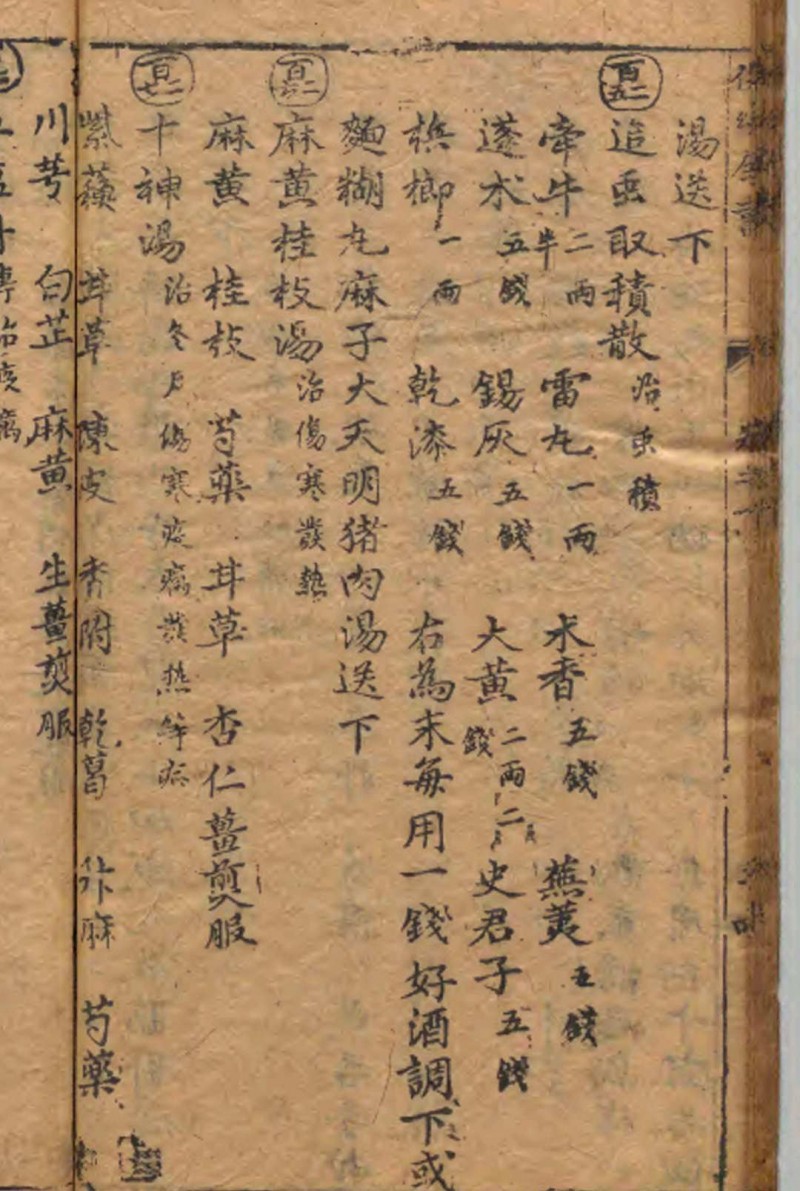 湯送下
百二五 追䖝取積散 治䖝積
牽牛 二兩半 雷丸 一兩 木香 五錢 蕪荑 五錢
蓬朮 五錢 錫灰 五錢 大黃 二兩二錢 史君子 五錢
檳榔 一兩 乾漆 五錢 右為末每用一錢好酒調下或
麵糊丸麻子大天明猪肉湯送下
百二六 麻黄桂枝湯 治傷寒發熱
麻黄 桂枝 芍藥 甘草 杏仁薑煎服
百二七 十神湯 治冬月傷寒疫癘發熱
紫蘓 甘草 陳皮 香附 乾葛 升麻 芍藥
川芎 白芷 麻黄 生薑煎服